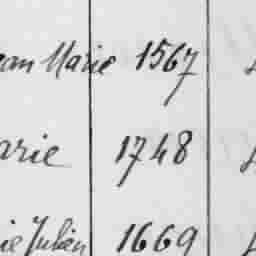 ean Marie 1567
arie 1748
ie Julien 1669